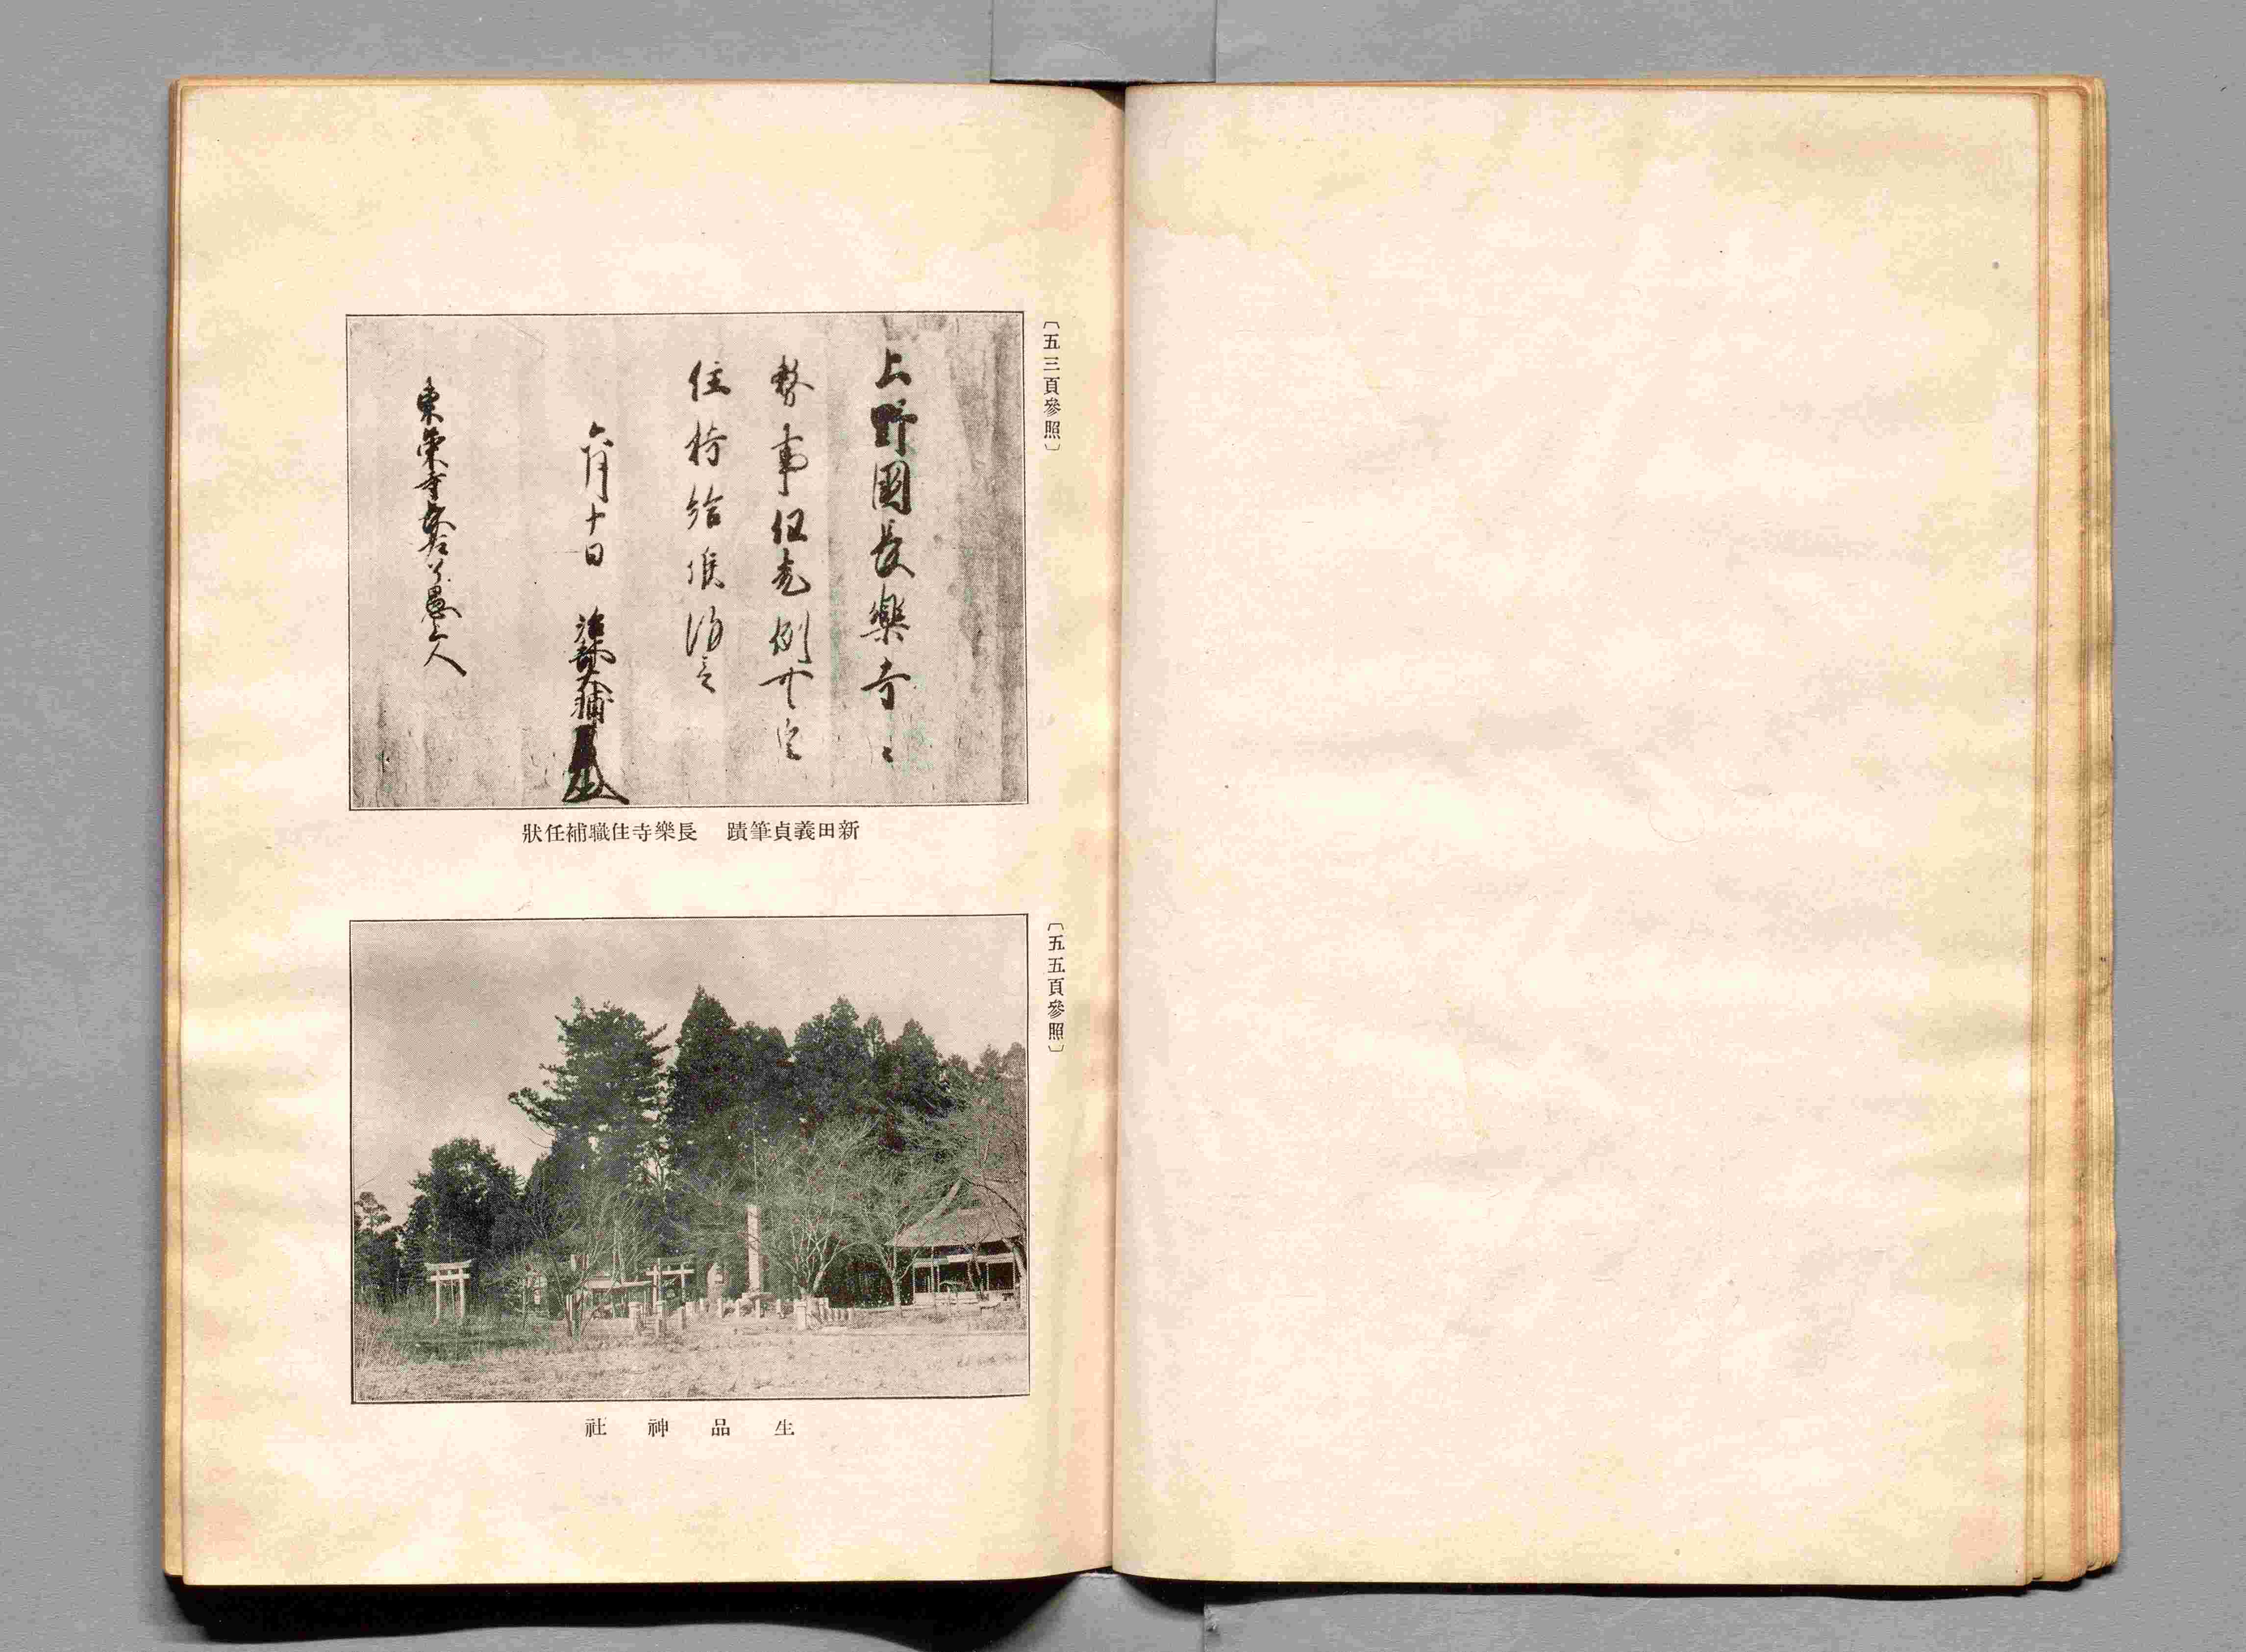 〔五三頁參照〕
上野國長樂寺〻
務事任先例可
住持給候
六月十日 治部大輔
東榮寺 上人
新田義貞筆蹟 長樂寺住職補任狀
〔五五頁參照〕
生品神社